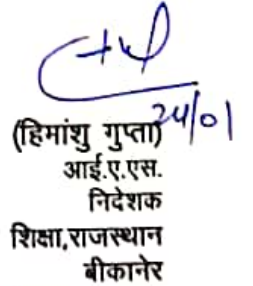 24/01
(हिमांशु गुप्ता)
आई.ए.एस.
निदेशक
शिक्षा,राजस्थान
बीकानेर